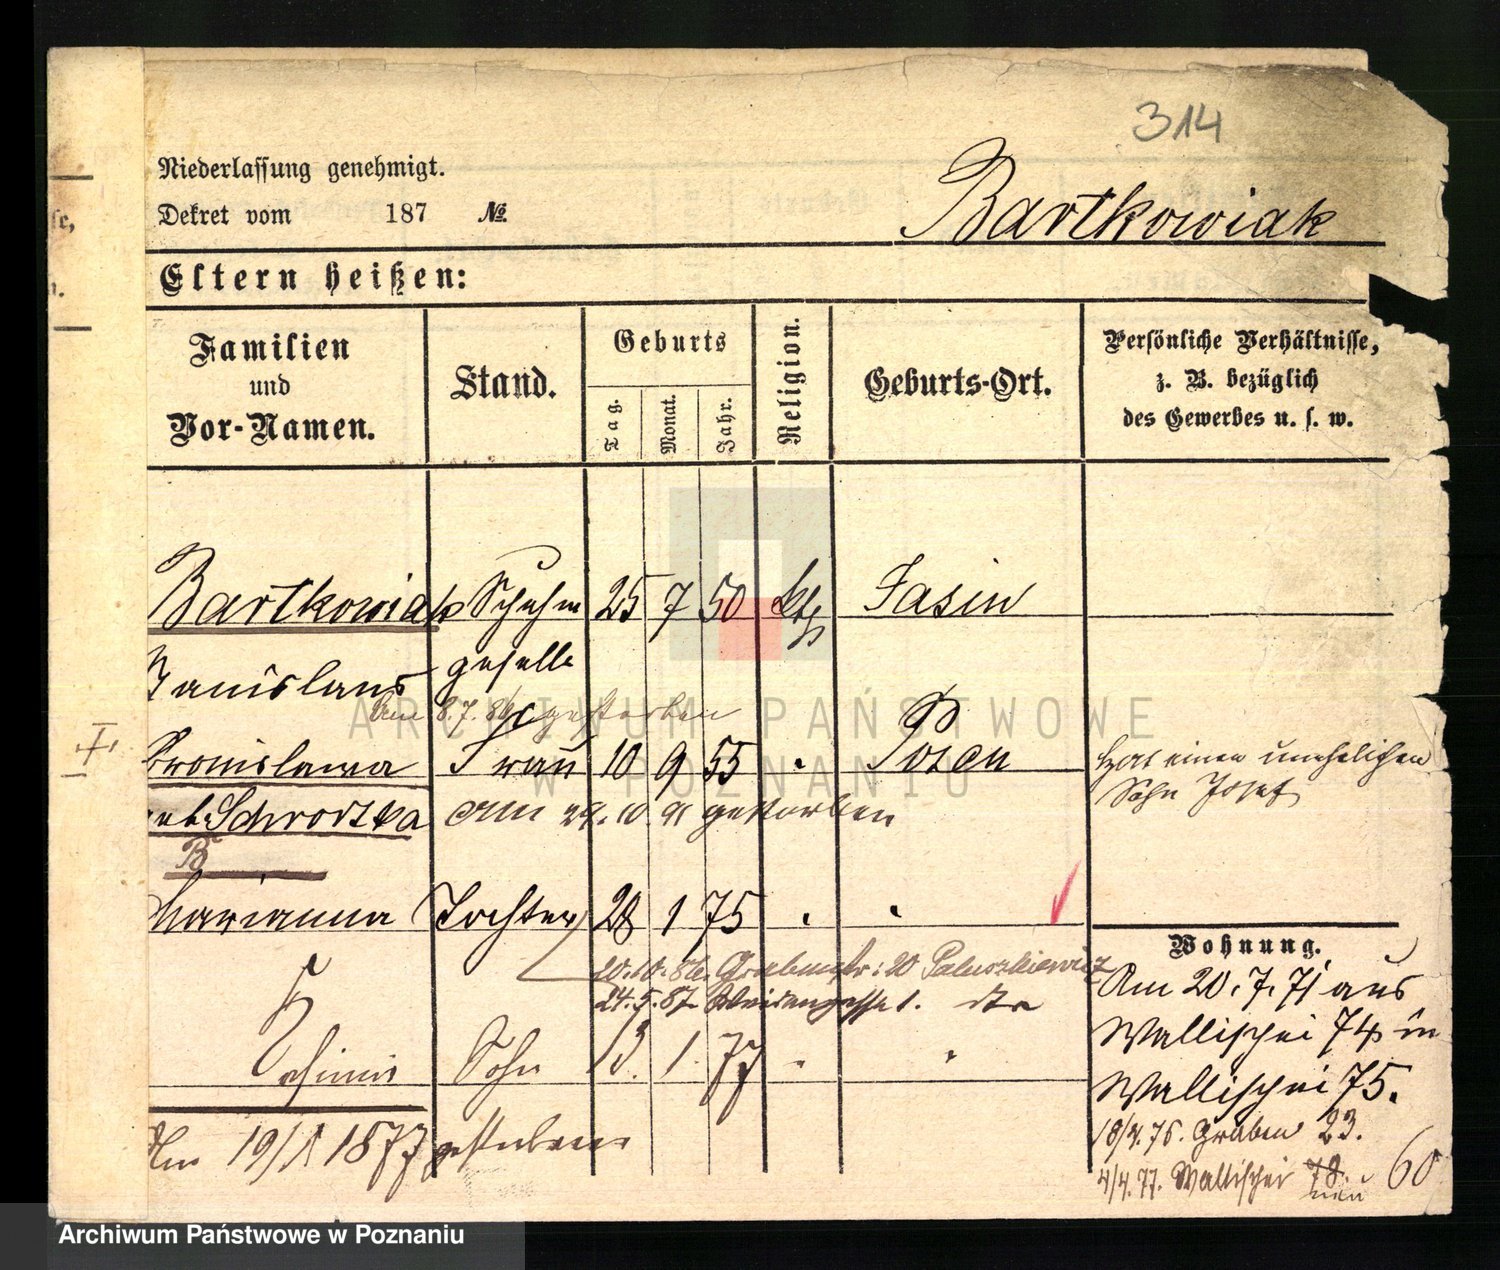 314
Niederlassung genehmigt.
Dekret vom 187 №
Bartkowiak
Eltern heißen:
Familien und Vor-Namen.
Stand.
Geburts
Tag. Monat. Jahr.
Religion.
Geburts-Ort.
Persönliche Verhältnisse,
z. B. bezüglich
des Gewerbes u. s. w.
Bartkowiak Schuhm 25 7 50 kth Jasin
geselle
Am 8.7.86 gestorben
Bronislawa Frau 10 9 55 " Posen
Hat einen unehelichen
Sohn Josef
geb. Schrodtka am 29.10.91 gestorben
B
Marianna Tochter 28 1 75 " "
20.10.86. Grabenstr: 20 Paluszkiewicz
24.5.87 Weidengasse 1. dto
Sohn 13. 1. 77 " "
Am 19/1 1877 gestorben
Wohnung.
Am 20.7.71 aus
Wallischei 74 in
Wallischei 75.
18/4.76. Graben 23.
4/4.77. Wallischei 78. 60
neu
ARCHIWUM PAŃSTWOWE
W POZNANIU
Archiwum Państwowe w Poznaniu